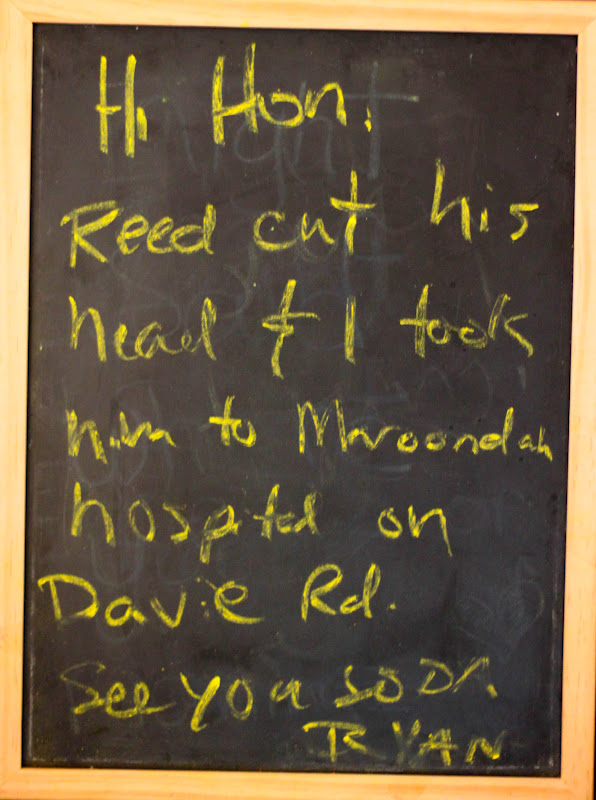 Hi Hon,
Reed cut his
head & I took
him to Maroondah
hospital on
Davie Rd.
See you soon.
RYAN